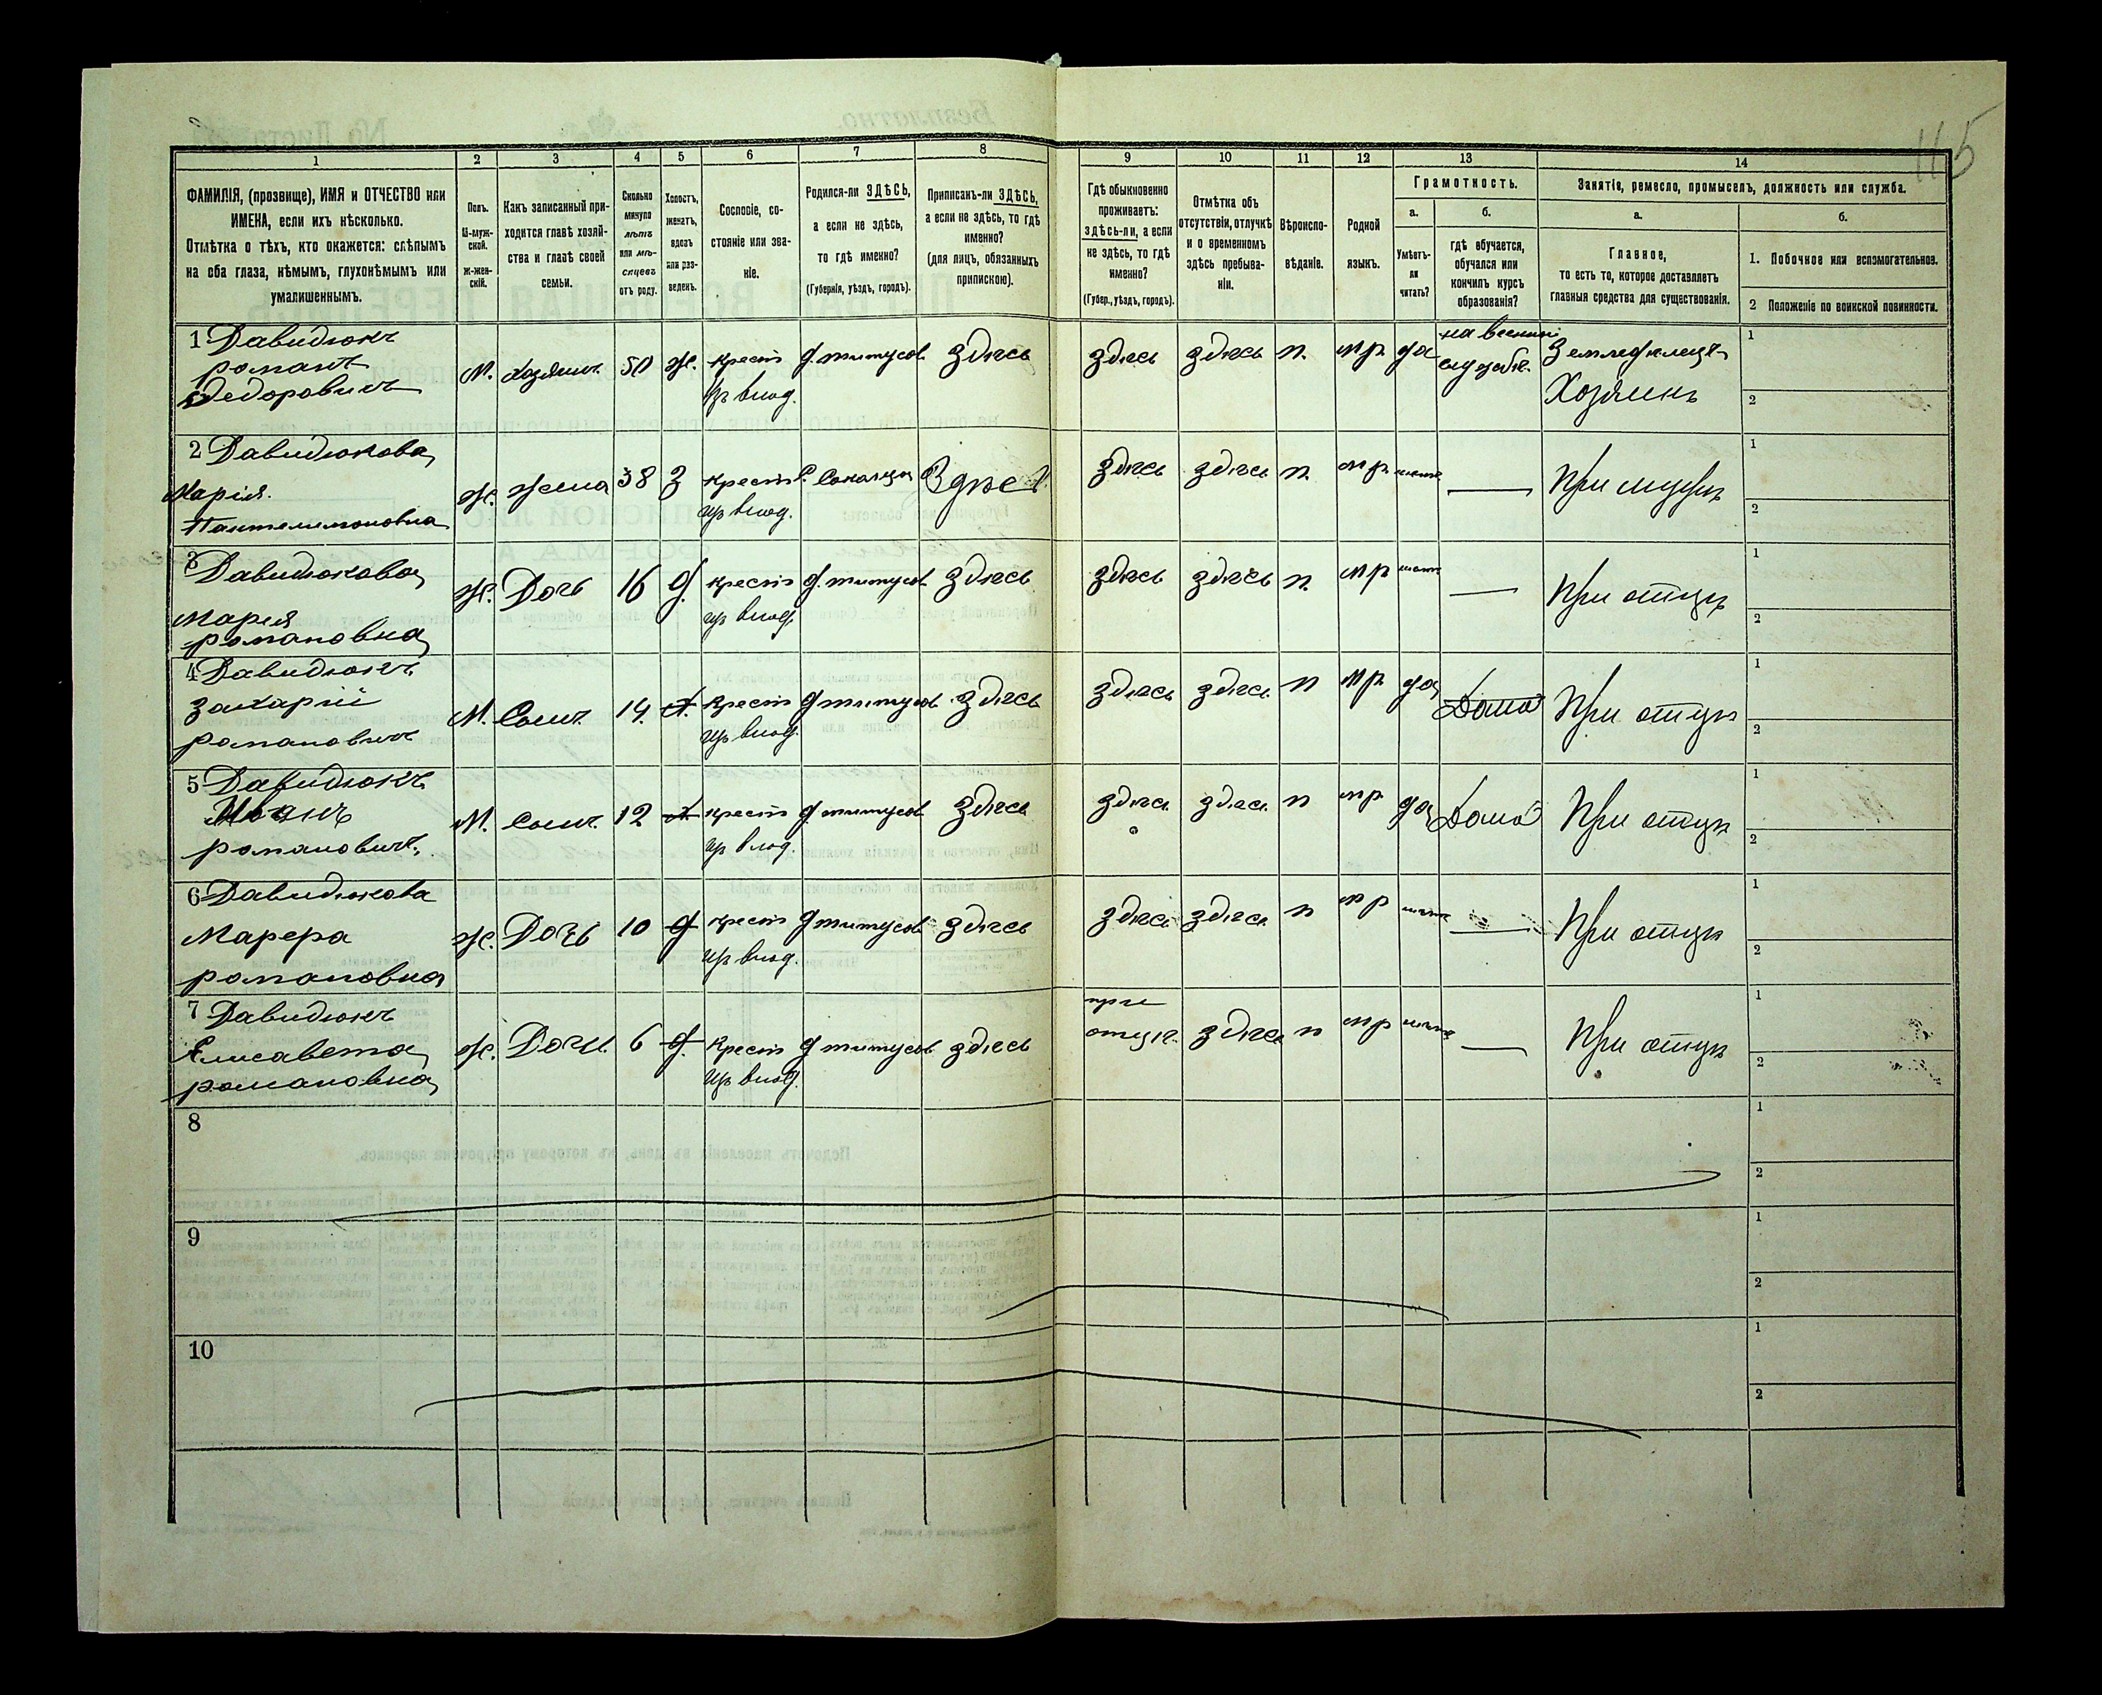 115
1 2 3 4 5 6 7 8 9 10 11 12 13 14
ФАМИЛІЯ, (прозвище), ИМЯ и ОТЧЕСТВО или
ИМЕНА, если ихъ нѣсколько.
Отмѣтка о тѣхъ, кто окажется: слѣпымъ
на оба глаза, нѣмымъ, глухонѣмымъ или
умалишеннымъ.
Полъ.
М-муж-
ской.
ж-жен-
скій.
Какъ записанный при-
ходится главѣ хозяй-
ства и главѣ своей
семьи.
Сколько
минуло
лѣтъ
или мѣ-
сяцевъ
отъ роду.
Холостъ,
женатъ,
вдовъ
или раз-
веденъ.
Сословіе, со-
стояніе или зва-
ніе.
Родился-ли ЗДѢСЬ,
а если не здѣсь,
то гдѣ именно?
(Губернія, уѣздъ, городъ).
Приписанъ-ли ЗДѢСЬ,
а если не здѣсь, то гдѣ
именно?
(для лицъ, обязанныхъ
припискою).
Гдѣ обыкновенно
проживаетъ:
здѣсь-ли, а если
не здѣсь, то гдѣ
именно?
(Губер., уѣздъ, городъ).
Отмѣтка объ
отсутствіи, отлучкѣ
и о временномъ
здѣсь пребыва-
ніи.
Вѣроиспо-
вѣданіе.
Родной
языкъ.
Грамотность.
а.
Умѣетъ-
ли
читать?
б.
гдѣ обучается,
обучался или
кончилъ курсъ
образованія?
Занятіе, ремесло, промыселъ, должность или служба.
а.
Главное,
то есть то, которое доставляетъ
главныя средства для существованія.
б.
1. Побочное или вспомогательное.
2 Положеніе по воинской повинности.
1 Давидюкъ
романъ
Федоровичъ
М. Хозяинъ 50 ж. крест изъ влад. д. титусов здѣсь здѣсь здѣсь п. мр да на военной службѣ. Земледѣлецъ Хозяинъ 1 2
2 Давидюкова
Марія
Пантелимоновна
ж. жена 38 З крест изъ влад. Здѣсь здѣсь здѣсь п. мр При мужѣ 1 2
3 Давидюкова
Марія
романовна
ж. Дочь 16 д. крест изъ влад. д. титусов здѣсь здѣсь здѣсь п. мр При отцѣ 1 2
4 Давидюкъ
захарій
романовичъ
М. Сынъ 14 крест изъ влад. д титусов здѣсь здѣсь здѣсь п мр да Дома При отцѣ 1 2
5 Давидюкъ
Иванъ
романовичъ
М. Сынъ 12 крест изъ влад. д. титусов здѣсь здѣсь здѣсь п мр да Дома При отцѣ 1 2
6 Давидюкова
Марера
романовна
ж. Дочь 10 д крест изъ влад. д титусов здѣсь здѣсь здѣсь п мр При отцѣ 1 2
7 Давидюкъ
Елисавета
романовна
ж. Дочь 6 д. крест изъ влад. д титусов здѣсь при отцѣ. здѣсь п мр При отцѣ 1 2
8 1 2
9 1 2
10 1 2